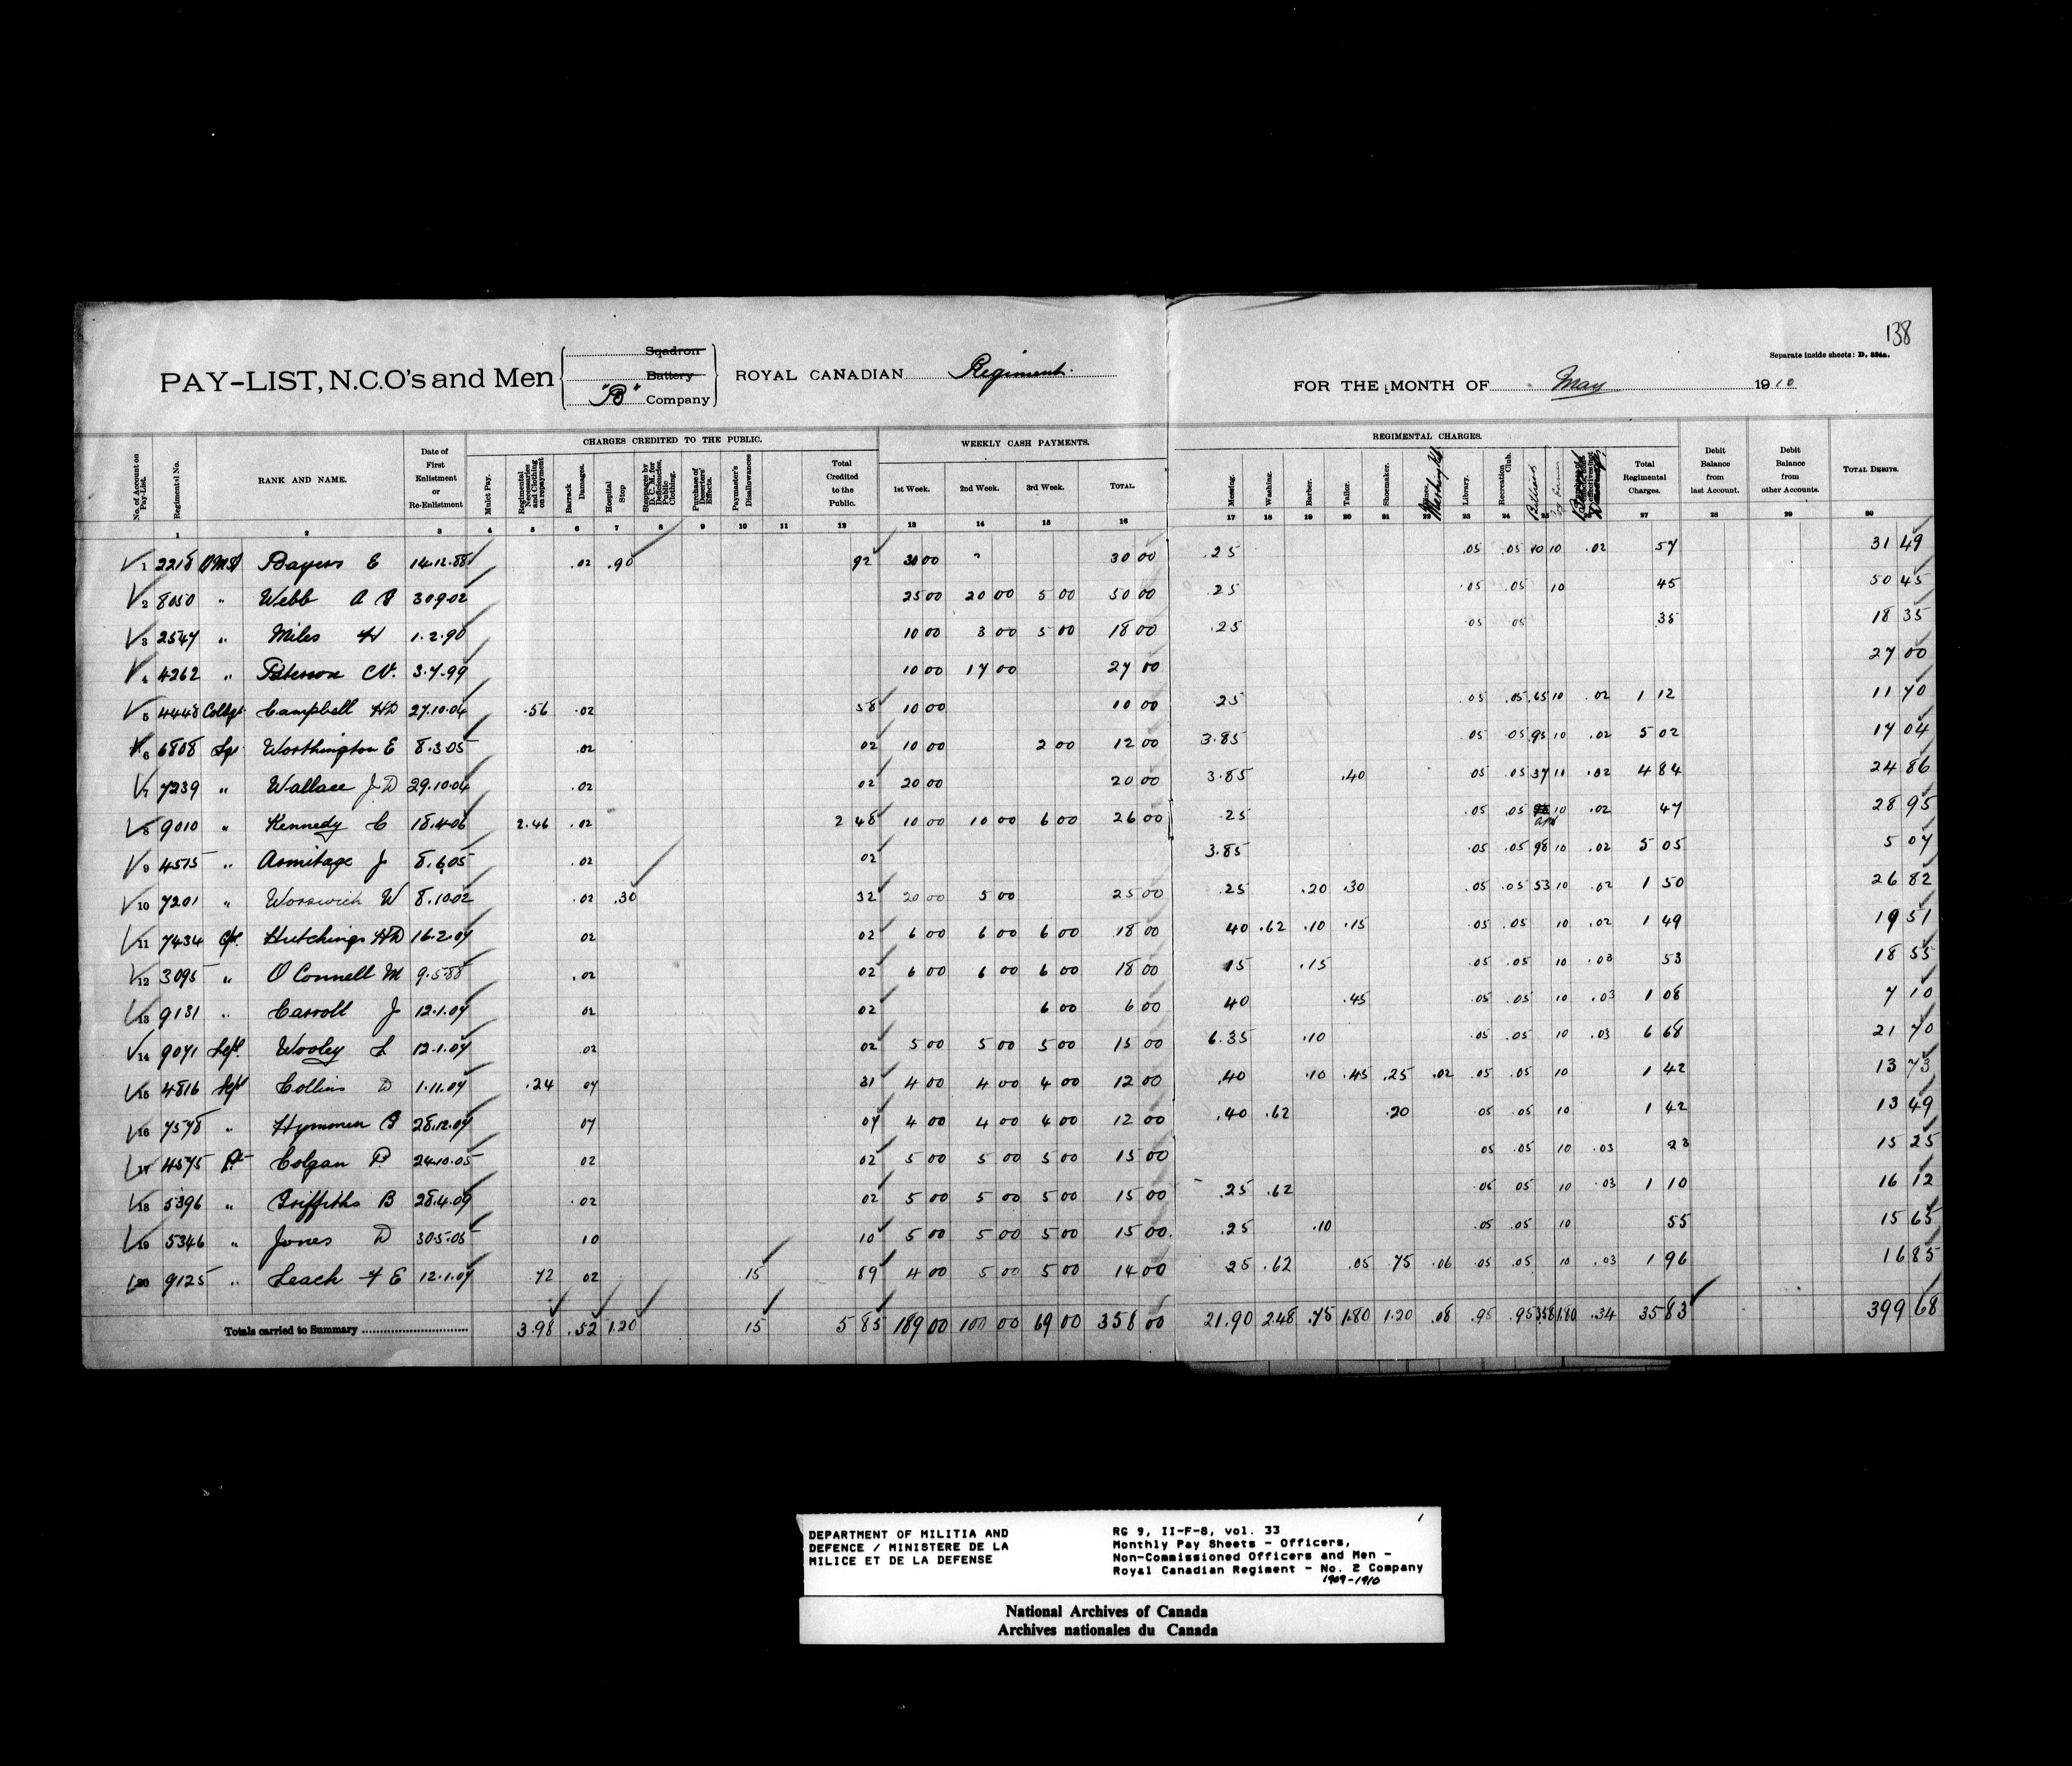 138
Separate inside sheets: D. 834a.
PAY-LIST, N.C.O's and Men { Sqadron Battery "B" Company } ROYAL CANADIAN Regiment. FOR THE MONTH OF May 1910
CHARGES CREDITED TO THE PUBLIC. WEEKLY CASH PAYMENTS. REGIMENTAL CHARGES.
No. of Account on Pay-List. Regimental No. RANK AND NAME. Date of First Enlistment or Re-Enlistment Mulct Pay. Regimental Necessaries and Clothing on repayment Barrack Damages. Hospital Stop Stoppages by D. C. M. for Deficiencies, Public Clothing. Purchase of Deserters' Effects. Paymaster's Disallowances Total Credited to the Public. 1st Week. 2nd Week. 3rd Week. TOTAL. Messing. Washing. Barber. Tailor. Shoemaker. Library. Recreation Club. Billiards Total Regimental Charges. Debit Balance from last Account. Debit Balance from other Accounts. TOTAL DEBITS.
1 2 3 4 5 6 7 8 9 10 11 12 13 14 15 16 17 18 19 20 21 22 23 24 25 26 27 28 29 30
1 2218 QMS Bayers E 14.12.88 .02 .90 92 30 00 " 30 00 .25 .05 .05 10 10 .02 57 31 49
2 8050 " Webb A G 30.9.02 25 00 20 00 5 00 50 00 .25 .05 .05 10 45 50 45
3 2547 " Miles H 1.2.90 10 00 3 00 5 00 18 00 .25 05 05 35 18 35
4 4262 " Paterson C.V. 3.7.99 10 00 17 00 27 00 27 00
5 4448 ColSgt Campbell HD 27.10.04 .56 .02 58 10 00 10 00 .25 05 .05 .65 10 .02 1 12 11 70
6 6808 Sgt Worthington E 8.3.05 .02 02 10 00 2 00 12 00 3.85 05 05 .95 10 .02 5 02 17 04
7 7239 " Wallace J D 29.10.04 .02 02 20 00 20 00 3.85 .40 05 .05 37 10 .02 4 84 24 86
8 9010 " Kennedy C 18.4.06 2.46 .02 2 48 10 00 10 00 6 00 26 00 .25 .05 .05 10 .02 47 28 95
9 4515 " Armitage J 8.6.05 .02 02 3.85 .05 .05 98 10 .02 5 05 5 07
10 7201 " Worswick W 8.10.02 .02 .30 32 20 00 5 00 25 00 .25 .20 .30 .05 .05 53 10 .02 1 50 26 82
11 7434 Cpl. Hutchings HD 16.2.07 02 02 6 00 6 00 6 00 18 00 40 .62 .10 .15 .05 .05 10 .02 1 49 19 51
12 3095 " O Connell M 9.5.88 .02 02 6 00 6 00 6 00 18 00 15 .15 .05 .05 10 .03 53 18 55
13 9131 " Carroll J 12.1.07 02 02 6 00 6 00 40 .45 .05 .05 10 .03 1 08 7 10
14 9071 Wooley L 12.1.07 .02 02 5 00 5 00 5 00 15 00 6.35 .10 .05 .05 10 .03 6 68 21 70
15 4816 Collins D 1.11.07 .24 07 31 4 00 4 00 4 00 12 00 .40 .10 .45 .25 .02 .05 .05 10 1 42 13 73
16 7578 " Hymmen G 28.12.07 07 07 4 00 4 00 4 00 12 00 .40 .62 .20 .05 .05 10 1 42 13 49
17 4575 Pt Colgan P. 24.10.05 02 02 5 00 5 00 5 00 15 00 05 .05 10 .03 23 15 25
18 5396 " Griffiths B 28.4.09 .02 02 5 00 5 00 5 00 15 00 .25 .62 .05 05 10 .03 1 10 16 12
19 5346 " Jones D 30.5.05 10 10 5 00 5 00 5 00 15 00. .25 .10 .05 .05 10 55 15 65
20 9125 " Leach F E 12.1.07 .72 02 15 89 4 00 5 00 5 00 14 00 25 .62 .05 75 .06 .05 .05 10 .03 1 96 16 85
Totals carried to Summary 3.98 .52 1.20 15 5 85 189 00 100 00 69 00 358 00 21.90 2.48 .75 1.80 1.20 .08 .95 .95 3.58 1.80 .34 35 83 399 68
DEPARTMENT OF MILITIA AND
DEFENCE / MINISTERE DE LA
MILICE ET DE LA DEFENSE
RG 9, II-F-8, vol. 33
Monthly Pay Sheets - Officers,
Non-Commissioned Officers and Men -
Royal Canadian Regiment - No. 2 Company
1909-1910
National Archives of Canada
Archives nationales du Canada